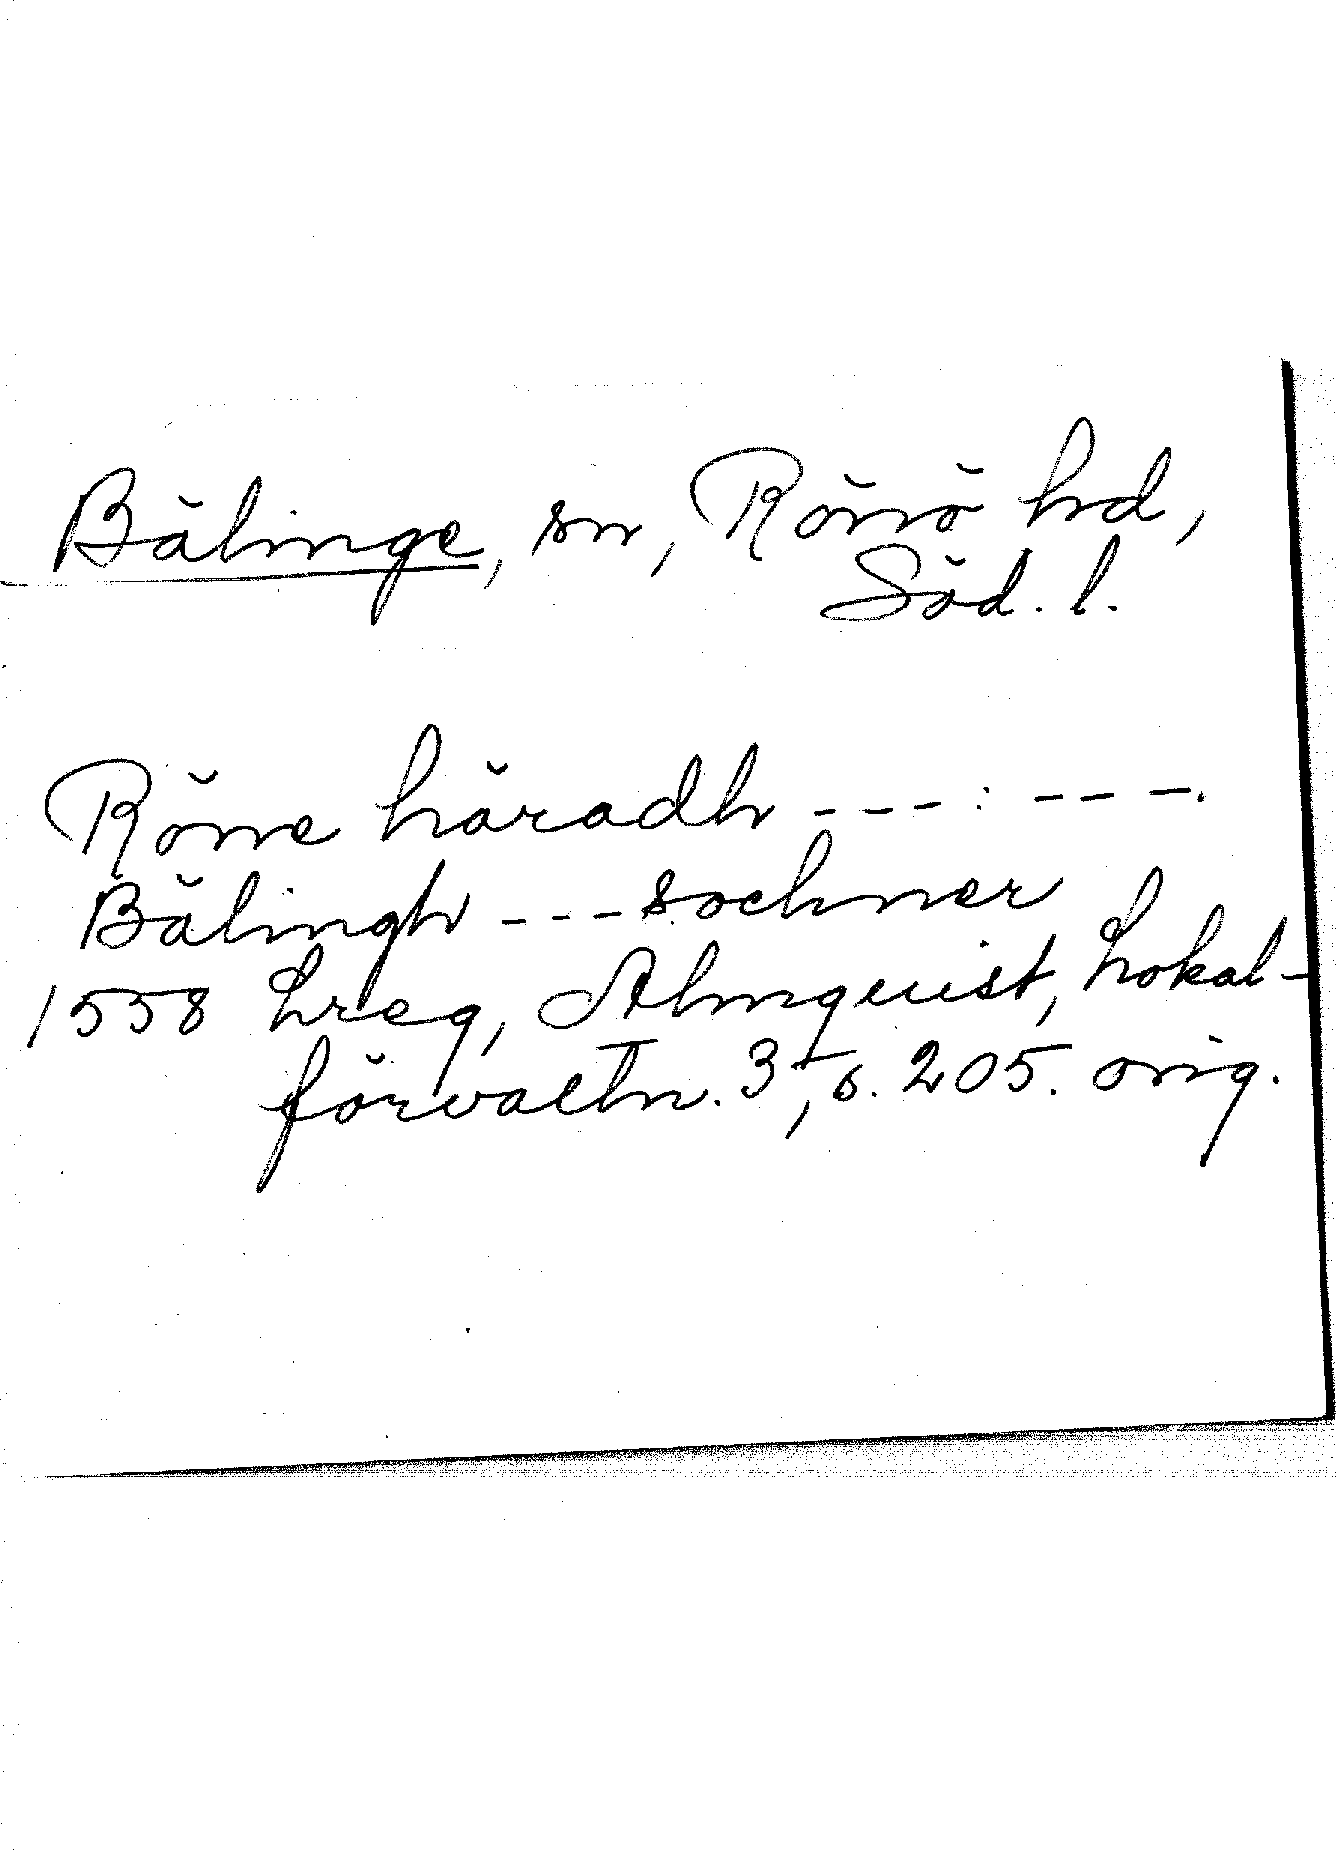 Bälinge, sn, Rönö hd,
Söd. l.
Röne häradh --- : ---.
Bälingh --- sochner
1558 Lreg, Almquist, Lokal-
förvaltn. 3, s. 205. orig.